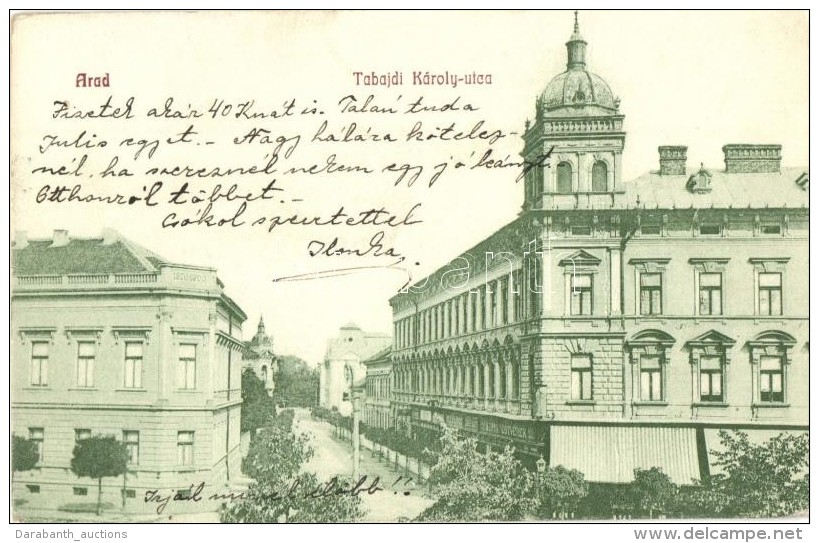 Arad
Tabajdi Károly-utca
Fizetek akár 40 Knát is. Talán tuda
Julis egyet. - Nagy hálára kötelez-
nél, ha szereznél nekem egy jó leányt
Otthonról többet. -
Csókol szeretettel
Ilonka
Irjál minél előbb!!
banti
Darabanth_auctions
http://www.delcampe.net